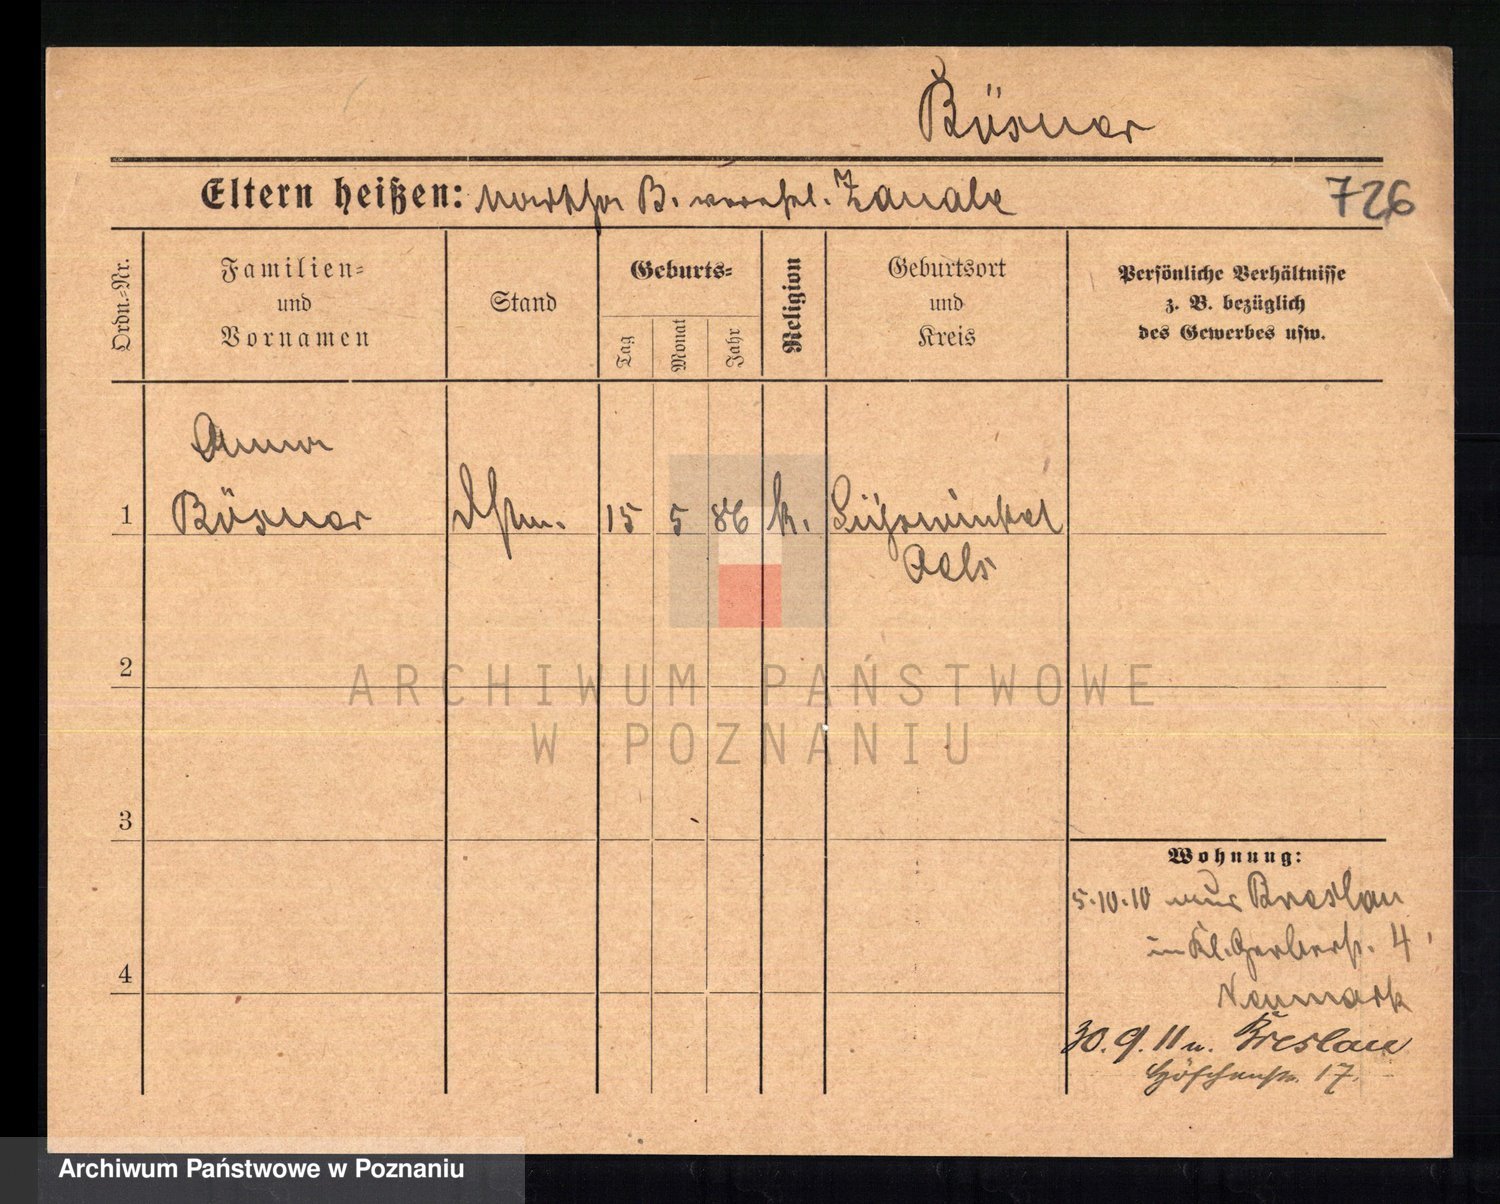 Büsner
Eltern heißen: B. verehl. Zanala
726
Ordn.-Nr.
Familien-
und
Vornamen
Stand
Geburts-
Tag
Monat
Jahr
Religion
Geburtsort
und
Kreis
Persönliche Verhältnisse
z. B. bezüglich
des Gewerbes usw.
Anna
1 Büsner 15 5 86 k.
Oels
2
ARCHIWUM PAŃSTWOWE
W POZNANIU
3
4
Wohnung:
5.10.10 aus Breslau
in Kl. Gerberstr. 4
Neumark
30.9.11 n. Breslau
17.
Archiwum Państwowe w Poznaniu